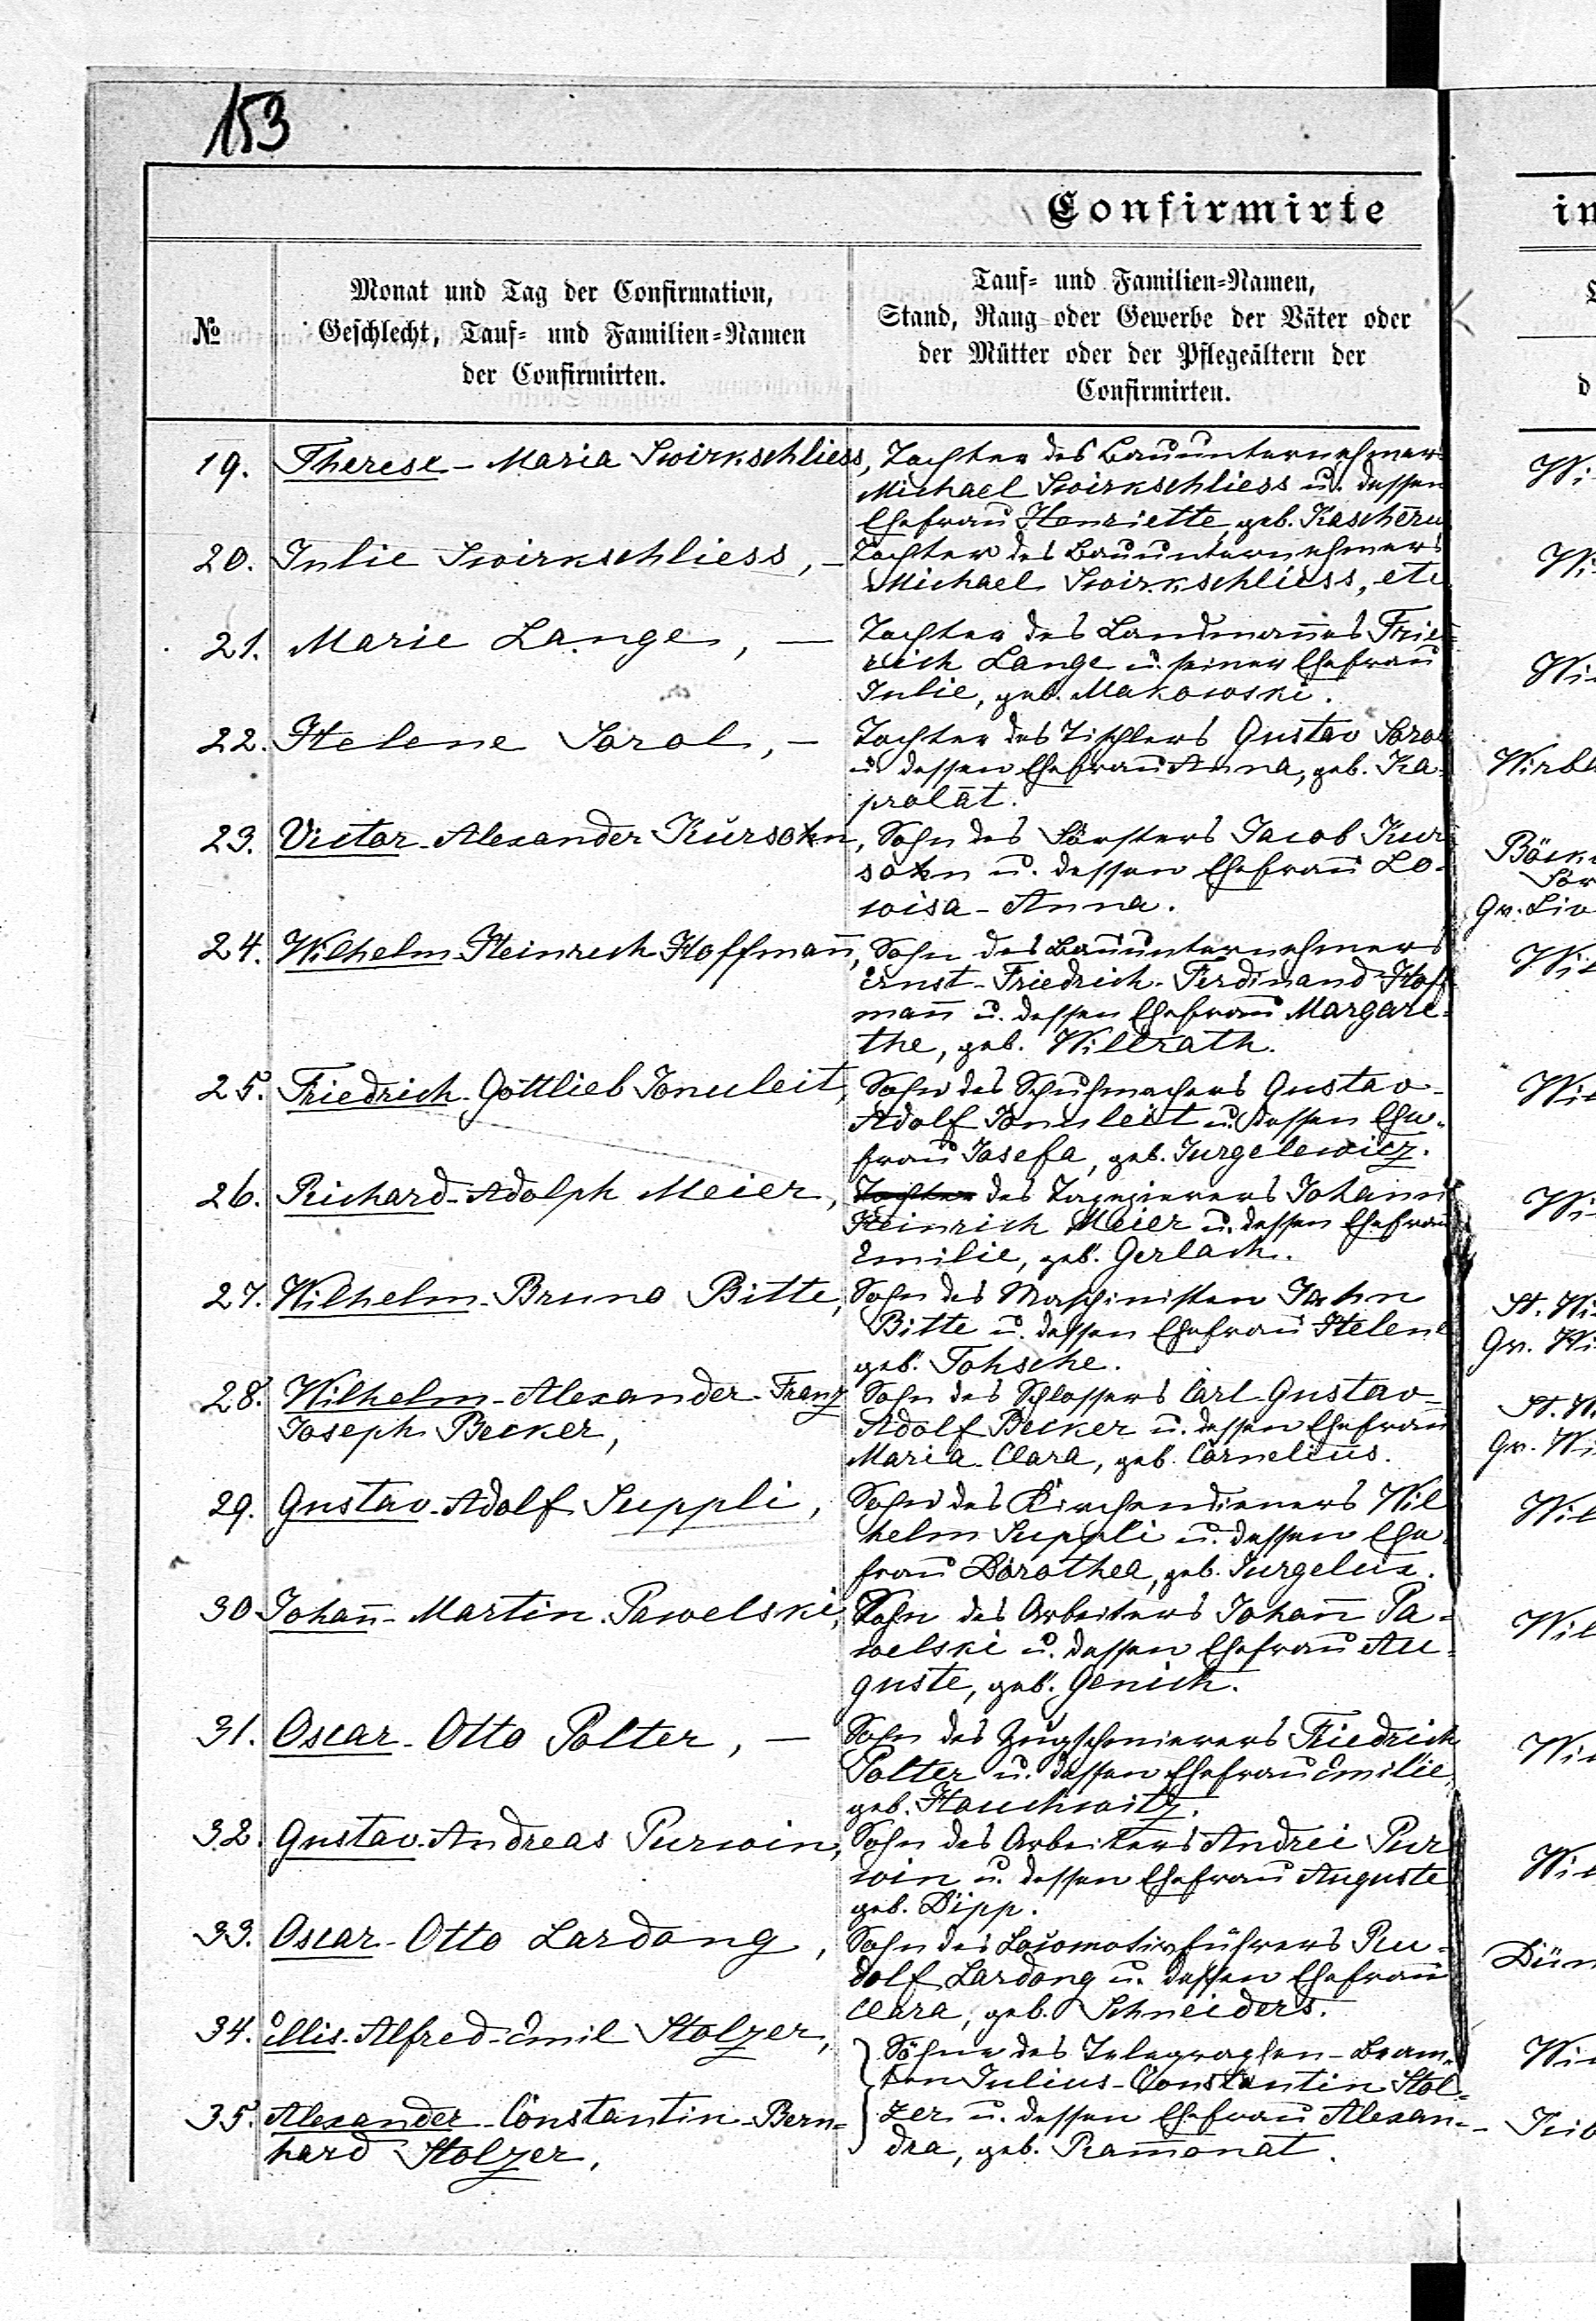 153
Confirmirte
№
Monat und Tag der Confirmation,
Geschlecht, Tauf- und Familien-Namen
der Confirmirten.
Tauf- und Familien-Namen,
Stand, Rang oder Gewerbe der Väter oder
der Mütter oder der Pflegeältern der
Confirmirten.
19. Therese-Maria Swirkschliess, Tochter des Bauunternehmers
Michael Swirkschliess u. dessen
Ehefrau Henriette, geb.
20. Julie Swirkschliess, – Tochter des Bauunternehmers
Michael Swirkschliess, etc
21. Marie Lange, — Tochter des Landmannes Fried-
rich Lange u. seiner Ehefrau
Julie, geb. Makowski.
22. Helene Sarol, – Tochter des Tischlers Gustav Sarol
u. dessen Ehefrau Anna, geb. Ka-
prolat.
23. Victor-Alexander Kursohn, Sohn des Försters Jacob Kur-
sohn u. dessen Ehefrau Lo-
wisa-Anna.
24. Wilhelm-Heinrich Hoffmann, Sohn des Bauunternehmers
Ernst-Friedrich-Ferdinand Hoff-
mann u. dessen Ehefrau Margare-
the, geb. Willrath.
25. Friedrich-Gottlieb Jonuleit, Sohn des Schuhmachers Gustav-
Adolf Jonuleit u. dessen Ehe-
frau Josefa, geb. Jurgelewicz.
26. Richard-Adolph Meier, Tochter des Tapezierers Johann
Heinrich Meier u. dessen Ehefrau
Emilie, geb. Gerlach.
27. Wilhelm-Bruno Bitte, Sohn des Maschinisten Jahn
Bitte u. dessen Ehefrau Helene
geb. Tohsche.
28. Wilhelm-Alexander-Franz Sohn des Schlossers Carl-Gustav-
Joseph Becker, Adolf Becker u. dessen Ehefrau
Maria-Clara, geb. Cornelius.
29. Gustav-Adolf Suppli, Sohn des Kirchendieners Wil-
helm Suppli u. dessen Ehe-
frau Dorothea, geb.
30. Johann-Martin Pawelski, Sohn des Arbeiters Johann Pa-
welski u. dessen Ehefrau Au-
guste, geb. Genich.
31. Oscar-Otto Polter, — Sohn des Friedrich
Polter u. dessen Ehefrau Emilie,
geb. Hauchwitz.
32. Gustav-Andreas Purwin, Sohn des Arbeiters Andrei Pur-
win u. dessen Ehefrau Auguste
geb. Dipp.
33. Oscar-Otto Lardong, Sohn des Locomotivführers Ru-
dolf Lardong u. dessen Ehefrau
Clara, geb. Schneiders.
34. Alfred-Emil Stolzer, Söhne des Telegraphen-Beam-
ten Julius-Constantin Stol-
35. Alexander-Constantin-Bern- zer u. dessen Ehefrau Alexan-
hard Stolzer, dra, geb. Rammonat.